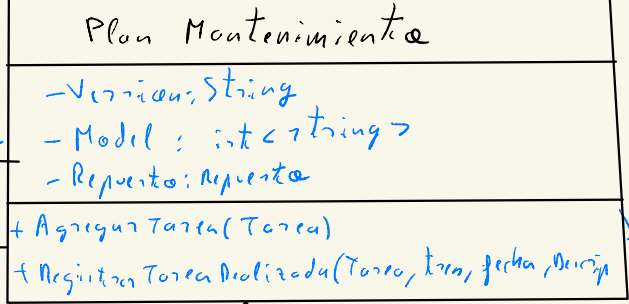 Plan Mantenimiento
- Version: String
- Model : int < string >
- Repuesto: Repuesto
+ Agregar Tarea (Tarea)
+ Registrar Tarea Realizada (Tarea, tren, fecha, Descrip